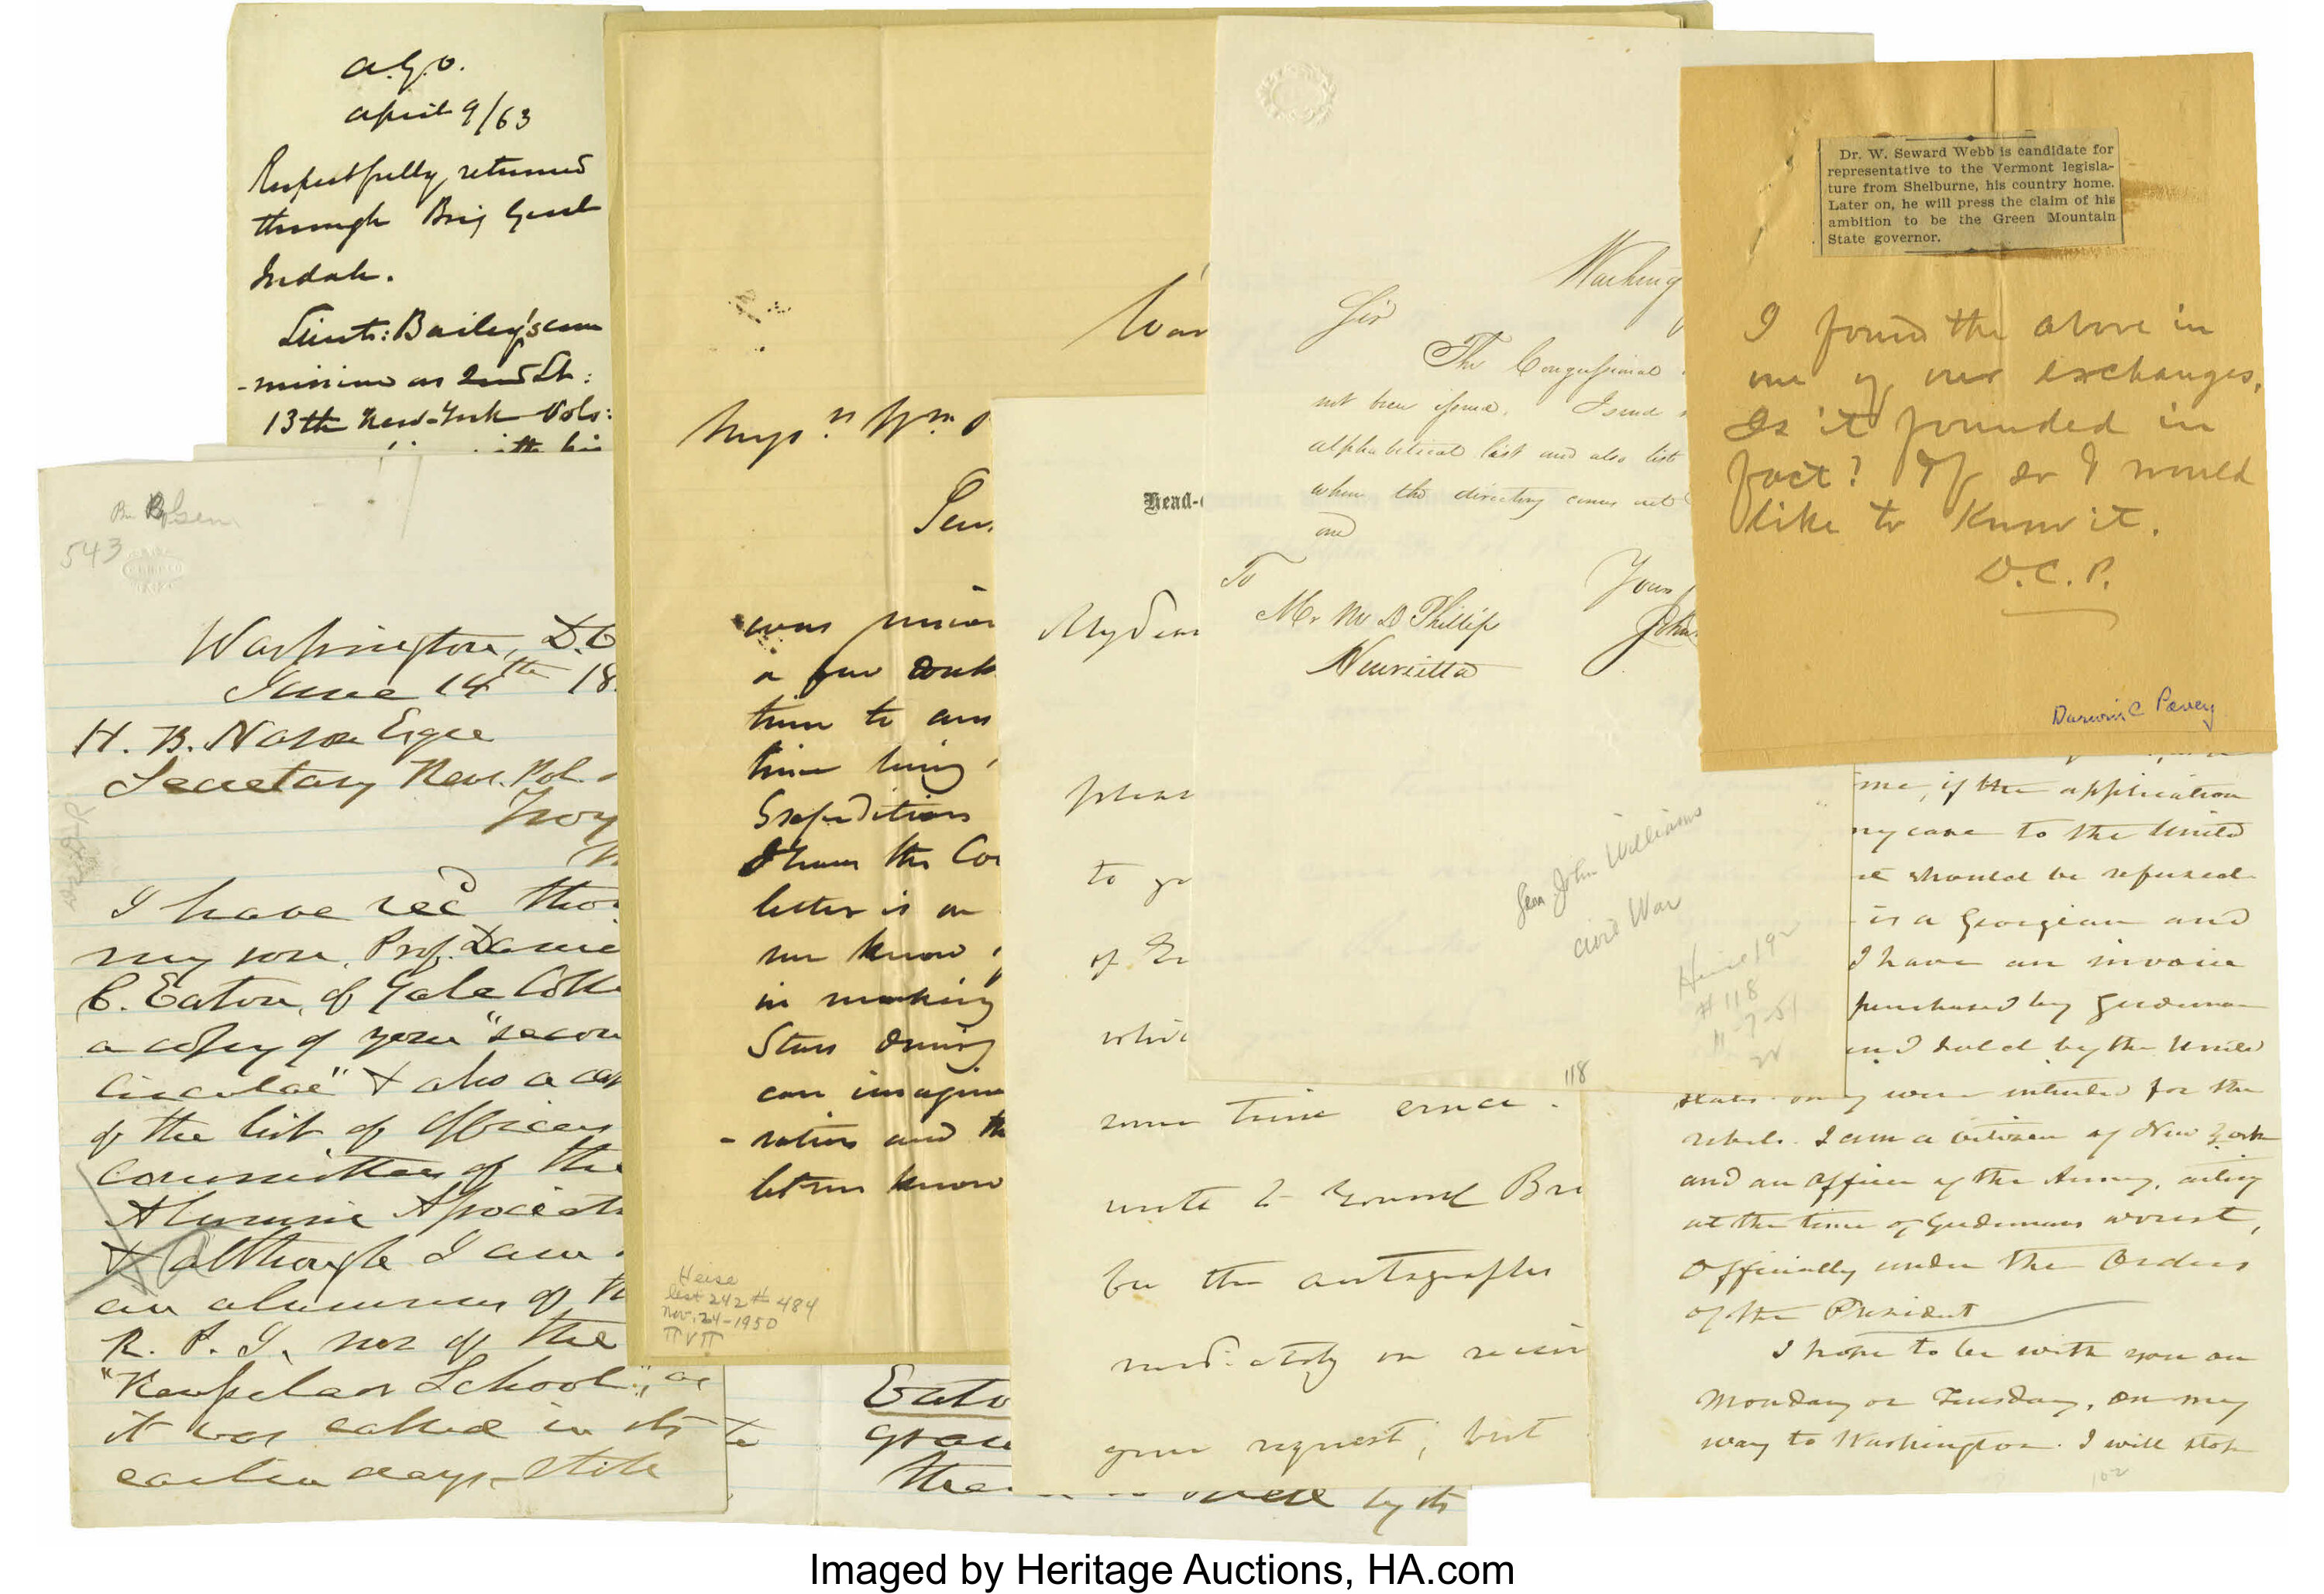 A.G.O.
April 9/63
Respectfully returned
through Brig Genl
Lieut: Bailey's com
-mission as 2nd Lt:
13th New-York Vols:
543
Washington, D.C
June 14th 18
H. B. Nason Esqre
Secretary Rens. Pol.
Troy
I have rec'd thro
my son, Prof. Danie
C. Eaton, of Yale Colle
a copy of your "secon
Circular" & also a cop
of the list of Officers
Committees of the
Alumni Associat
& although I am
an alumnus of th
R. P. I., nor of the
"Rensselaer School", as
it was called in its
earlier days, still
War
Genl
was
a few
time to ans
him being
Expedition
I have the Co
letter is on
me know
in making
Stars during
can imagine
-ration and th
let me know
Heise
list 242 # 484
Nov. 24-1950
Eato
to
grou
by its
Head-
My Dear
pleas
to
of
whic
some time since.
wrote to
for the autographs
your request, but
Washing
Sir
The Congressional
not been issued. I send
alphabetical list and also list
when the directory comes out
one
To
Mr M D Phillip
Henrietta
Yours
John
Gen John Williams
Civil War
Heise 192
# 118
11-7-51
118
Dr. W. Seward Webb is candidate for
representative to the Vermont legisla-
ture from Shelburne, his country home.
Later on, he will press the claim of his
ambition to be the Green Mountain
State governor.
I found the above in
one of our exchanges.
Is it founded in
fact? If so I would
like to know it.
D.C.P.
Darwin C Pavey
me, if the application
my care to the United
it should be refused
is a Georgian and
I have an invoice
purchased by
and sold by the United
States only were intended for the
rebels. I am a citizen of New York
and an officer of the Army, acting
at the time of arrest,
Officially under the Orders
of the President
I hope to be with you on
Monday or Tuesday, on my
way to Washington. I will stop
102
Imaged by Heritage Auctions, HA.com